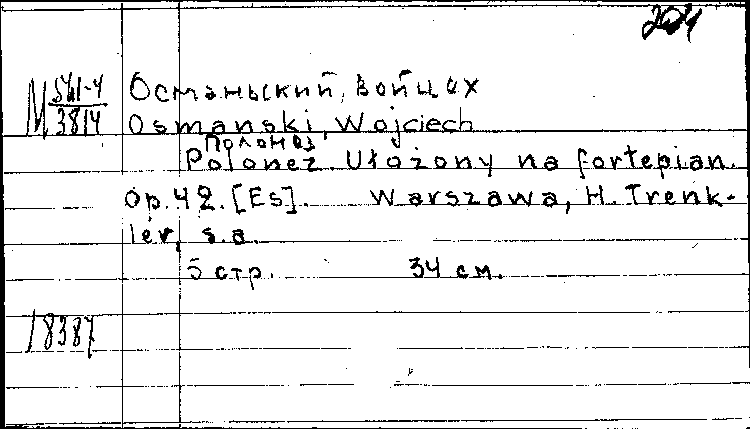 204
М 541-4
3814
Османьский, Войцех
Osmański, Wojciech
Полонез.
Polonez. Ułożony na fortepian.
Op. 42. [Es]. Warszawa, H. Trenk-
ler, s.a.
5 стр. 34 см.
18387